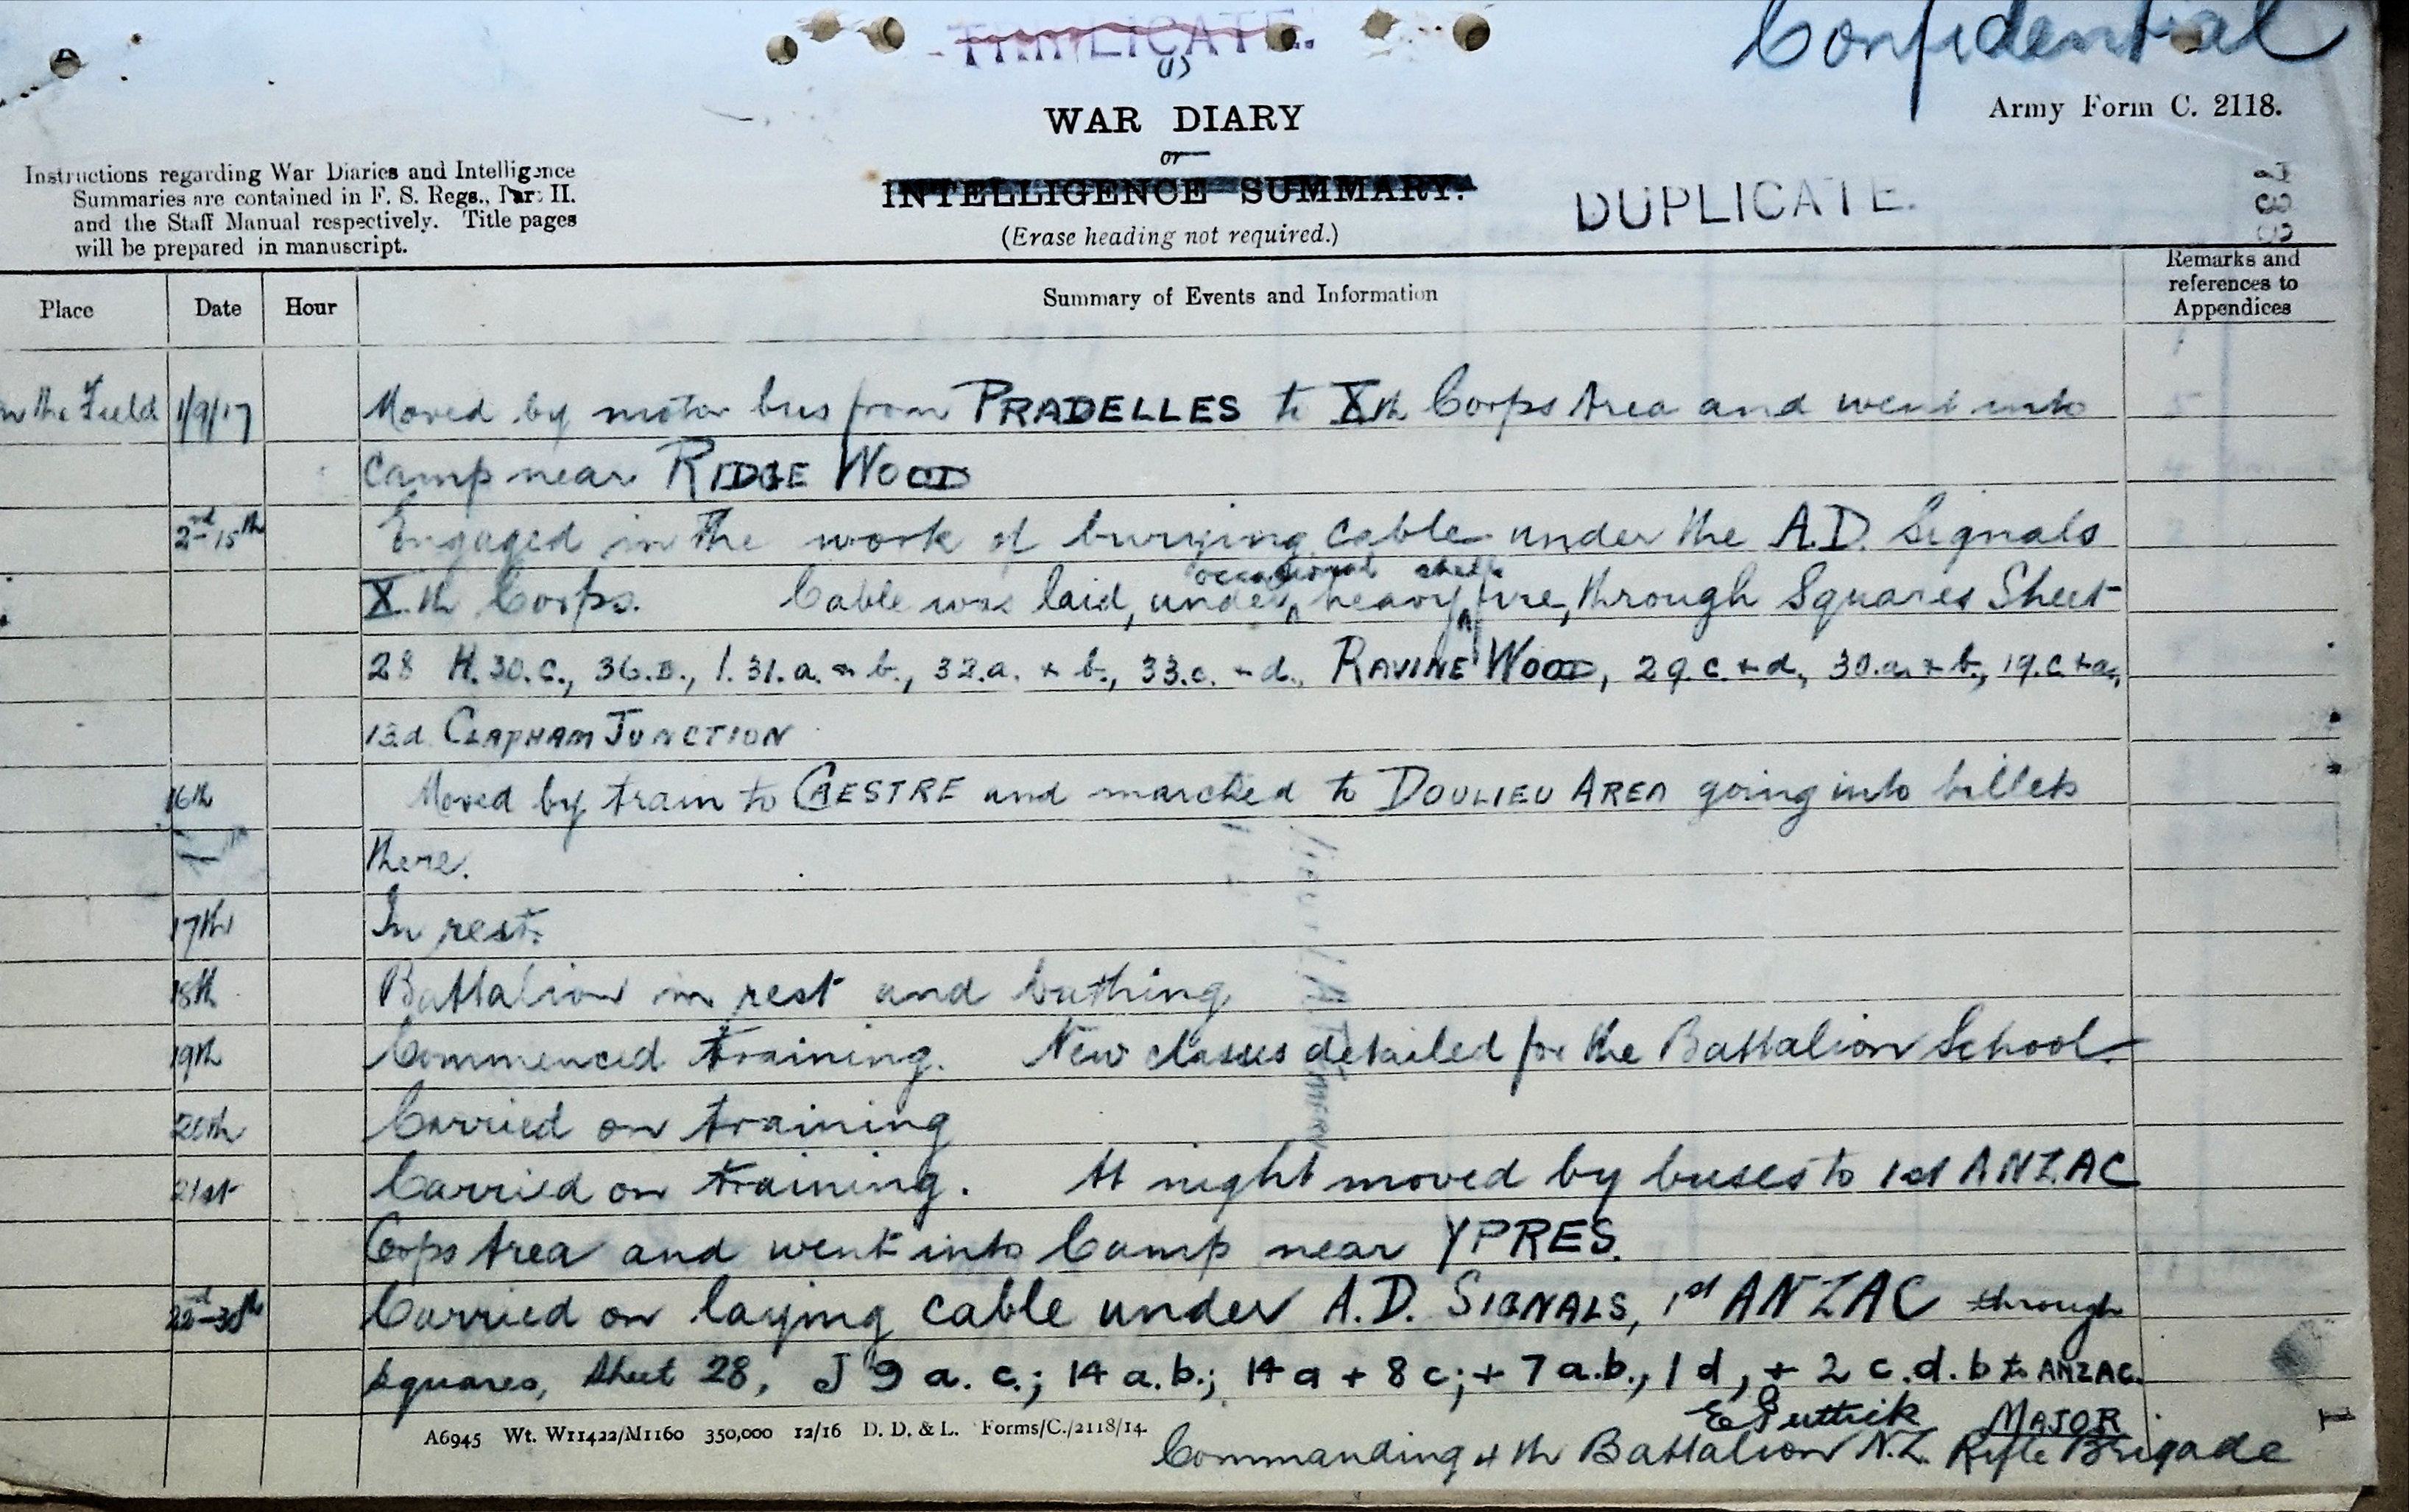 TRIPLICATE.
Confidential
(1)
WAR DIARY
or
INTELLIGENCE SUMMARY.
(Erase heading not required.)
Army Form C. 2118.
DUPLICATE.
Instructions regarding War Diaries and Intelligence
Summaries are contained in F. S. Regs., Part II.
and the Staff Manual respectively. Title pages
will be prepared in manuscript.
Place Date Hour Summary of Events and Information Remarks and references to Appendices
In the Field 1/9/17 Moved by motor bus from PRADELLES to Xth Corps Area and went into
camp near RIDGE WOOD
2nd-15th Engaged in the work of burying cable under the A.D. Signals
Xth Corps. Cable was laid, under occasional heavy shell fire, through Squares Sheet
28 H.30.c., 36.B., I.31.a. & b., 32.a. & b., 33.c. - d., RAVINE WOOD, 29.c. & d., 30.a. & b., 19.c & a,
13.d. CLAPHAM JUNCTION
16th Moved by train to CAESTRE and marched to DOULIEU AREA going into billets
there.
17th In rest.
18th Battalion in rest and bathing
19th Commenced training. New classes detailed for the Battalion School.
20th Carried on training
21st Carried on training. At night moved by buses to 1st ANZAC
Corps Area and went into Camp near YPRES.
22nd-30th Carried on laying cable under A.D. SIGNALS, 1st ANZAC through
squares, sheet 28, J 9 a. c.; 14 a.b.; 14 a + 8 c; + 7 a.b., 1 d, + 2 c.d. b to ANZAC.
E Puttick MAJOR
Commanding 4th Battalion N.Z. Rifle Brigade
A6945 Wt. W11422/M1160 350,000 12/16 D. D. & L. Forms/C./2118/14.
1